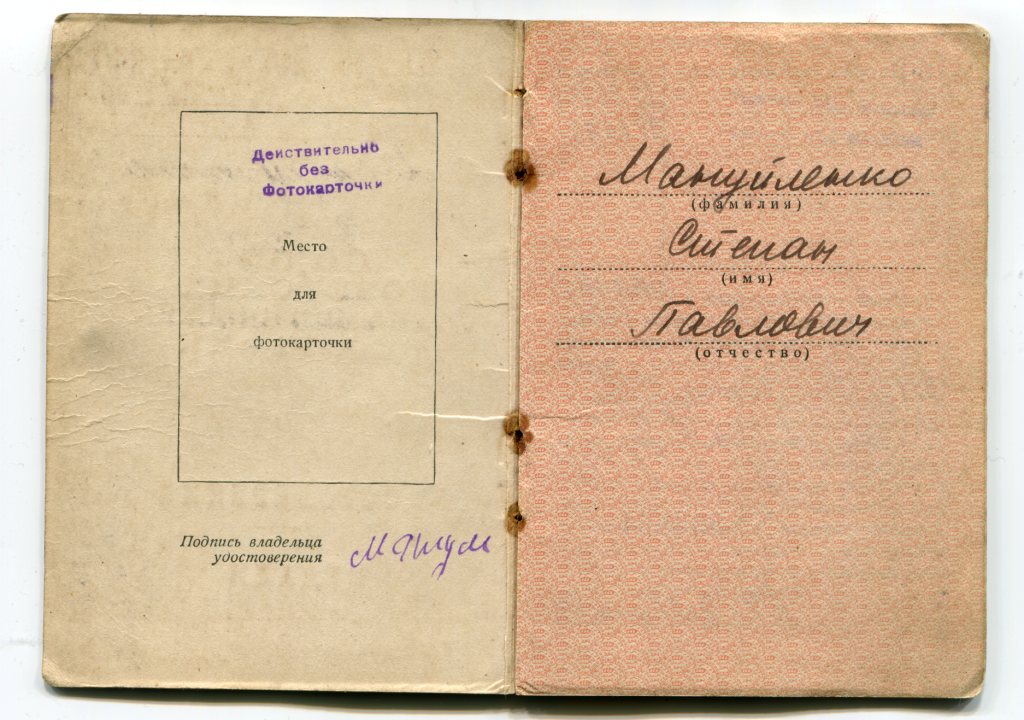 Действительно
без
Фотокарточки
Место
для
фотокарточки
Подпись владельца
удостоверения
Мануйленко
(фамилия)
Степан
(имя)
Павлович
(отчество)